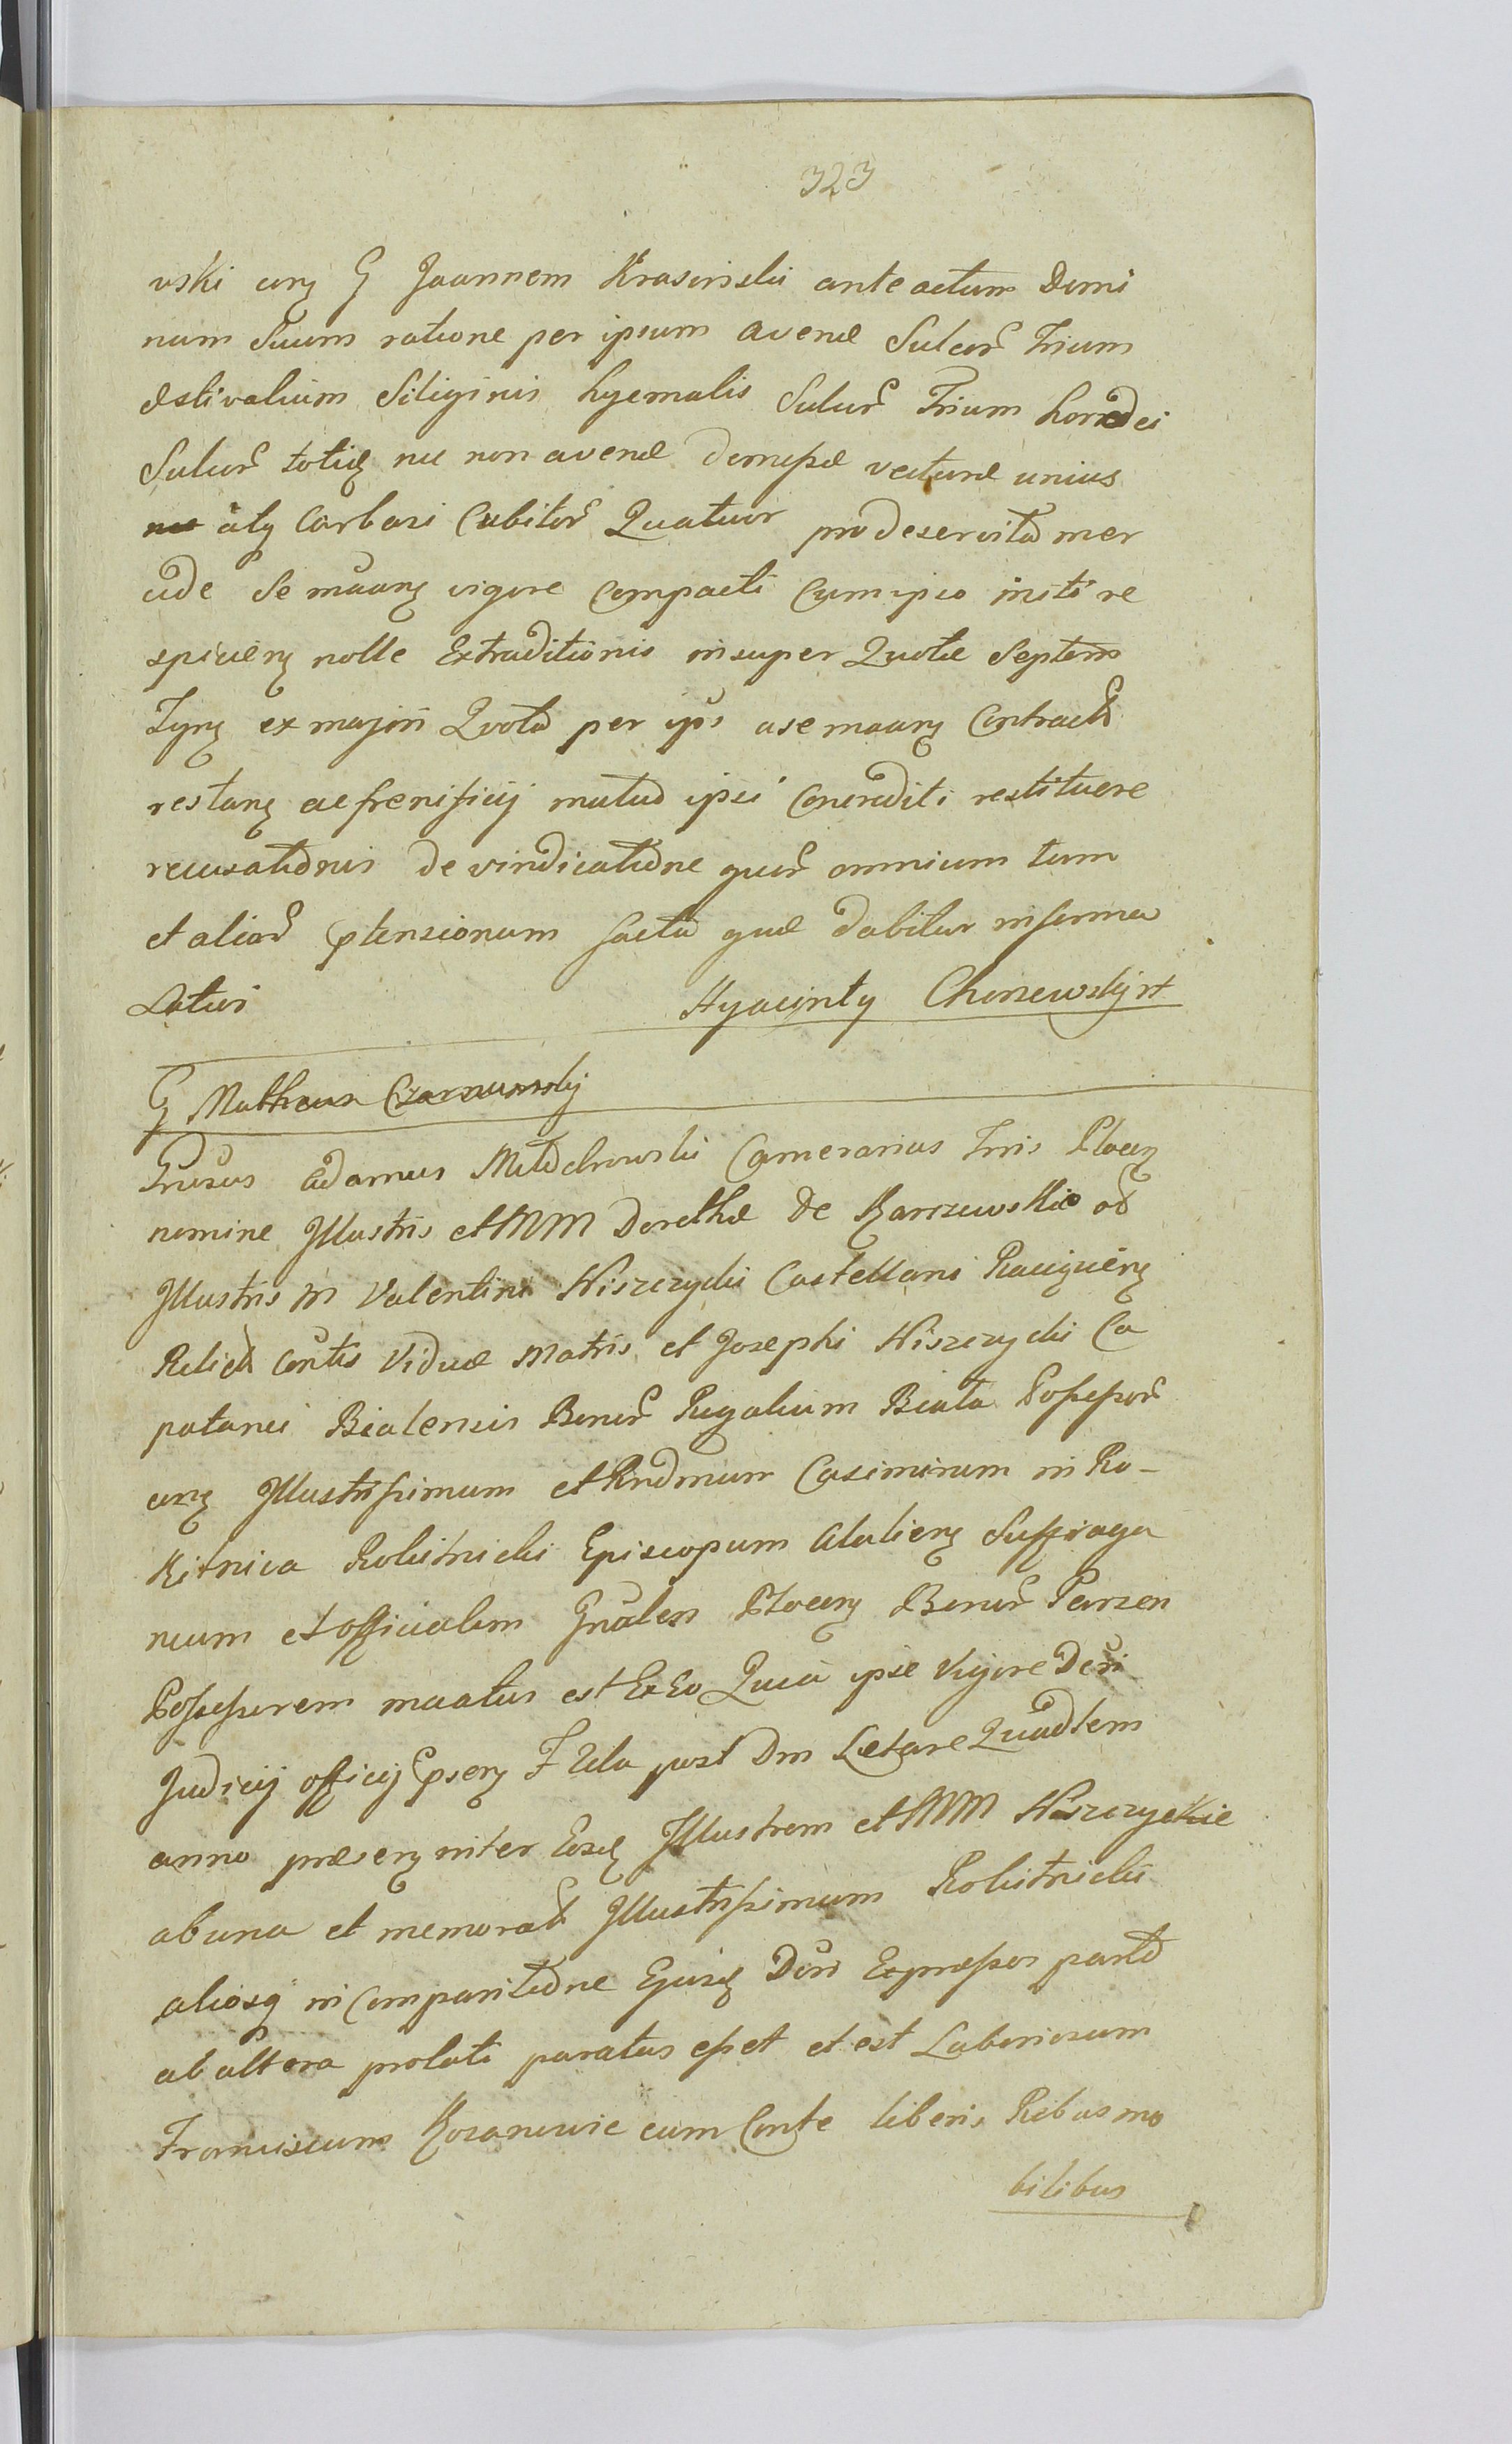 323
wski cɷ G Joannem Krasinski anteactum Domi
num Suum ratione per ipsum avenæ Sulcor Trium
æstivalium Siliginis hyemalis Sulcor Trium hordei
Sulcor totiđ nec non avenæ demessæ vecturæ unius
ały Carbasi Cubitor Quatuor pro deservita mer
cede se mãanꝫ vigore Compacti Cum ipso initi re
spicienꝫ nolle Extraditionis insuper Quotæ Septem
Tynꝫ ex majori Quota per ips a se mãanꝫ Contract
restanꝫ ac frenificij mutuo ipsi Concrediti restituere
recusationis de vindicatione quor omnium tum
et alior ptensionum facta quæ dabitur in forma
Latiori Hyacinty Chorzewsky
G Matheus Czarnowsky
Grusus Adamus Młodchowski Camerarius Trris Plocenꝫ
nomine Illustris et MM Dorothæ de Karczewskie od
Illustris M Valentini Wiszczycki Castellani Raciązenꝫ
Relictæ Contis Viduæ Matris et Josephi Wiszczycki Ca
pitanei Bialensis Bonor Regalium Biała Possessor
cɷ Illustrissimum et Rndmum Casimirum in Ro-
kitnica Rokitnicki Episcopum Alalienꝫ Suffraga
neum et Officialem Gnalem Plocenꝫ Bonor Parzen
Possessorem mãatus est Ex Eo Quia ipse Vigore Dcri
Judicij officij Epsenꝫ F 2da post Dm Lætare Quadlem
anno præsenꝫ inter Eosđ Illustrem et MM Wiszczyckie
ab una et memorat Illustrissimum Rokitnicki
aliosq in Comparitione Ejusđ Dcri Expressos parte
ab altera prolati paratus esset et est Laboriosum
Franciscum Kozanowic cum Conte liberis Rebus mo
bilibus